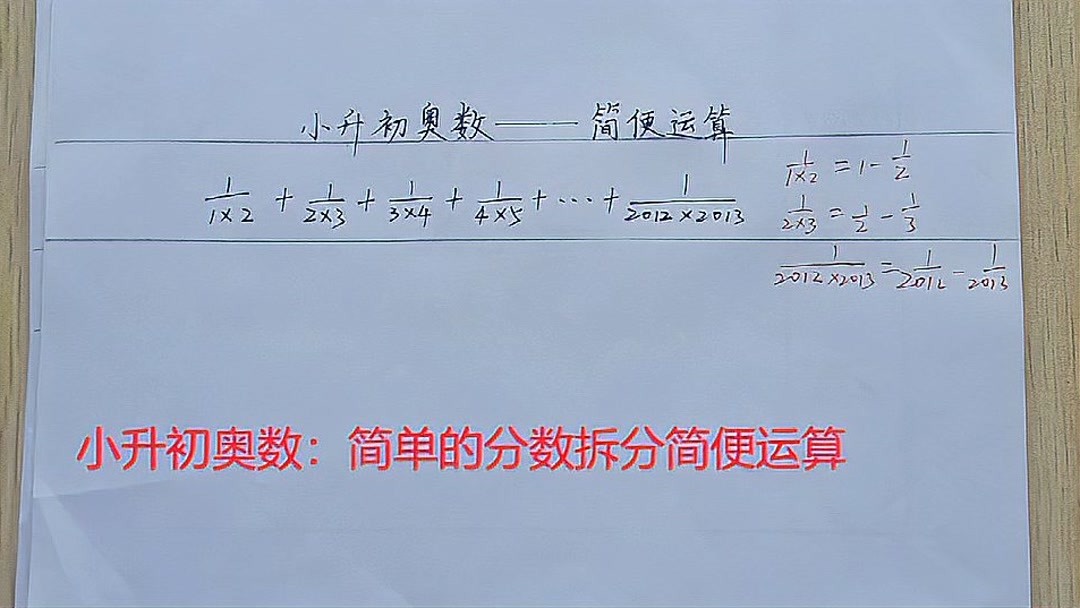 小升初奥数——简便运算
1/1×2 + 1/2×3 + 1/3×4 + 1/4×5 + ··· + 1/2012×2013
1/1×2 = 1 - 1/2
1/2×3 = 1/2 - 1/3
1/2012×2013 = 1/2012 - 1/2013
小升初奥数：简单的分数拆分简便运算